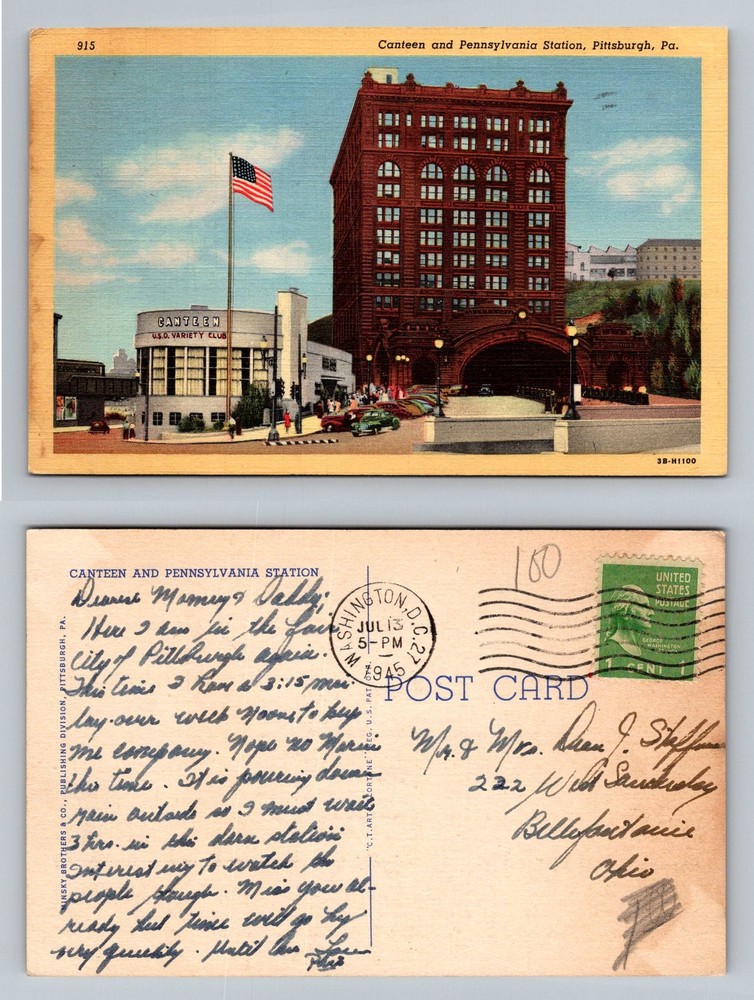 915
Canteen and Pennsylvania Station, Pittsburgh, Pa.
CANTEEN
U.S.O. VARIETY CLUB
3B-H1100
CANTEEN AND PENNSYLVANIA STATION
Dearest Mommy & Daddy:
Here I am in the fair
City of Pittsburgh again.
This time I have a 3:15
lay-over with to keep
me company. Nope no Marine
this time. It is pouring down
rain outside so I must wait
3 hrs. in this darn station
Interesting to watch the
people though. Miss you al-
ready but time will go by
very quickly. Until then Love
MINSKY BROTHERS & CO., PUBLISHING DIVISION, PITTSBURGH, PA.
"C.T. ART-COLORTONE" REG. U.S. PAT. OFF.
WASHINGTON, D.C. 27
JUL 13
5-PM
1945
100
UNITED
STATES
POSTAGE
GEORGE
WASHINGTON
1 CENT 1
POST CARD
Mr. & Mrs. Dean J.
222 West Sandusky
Bellefontaine
Ohio